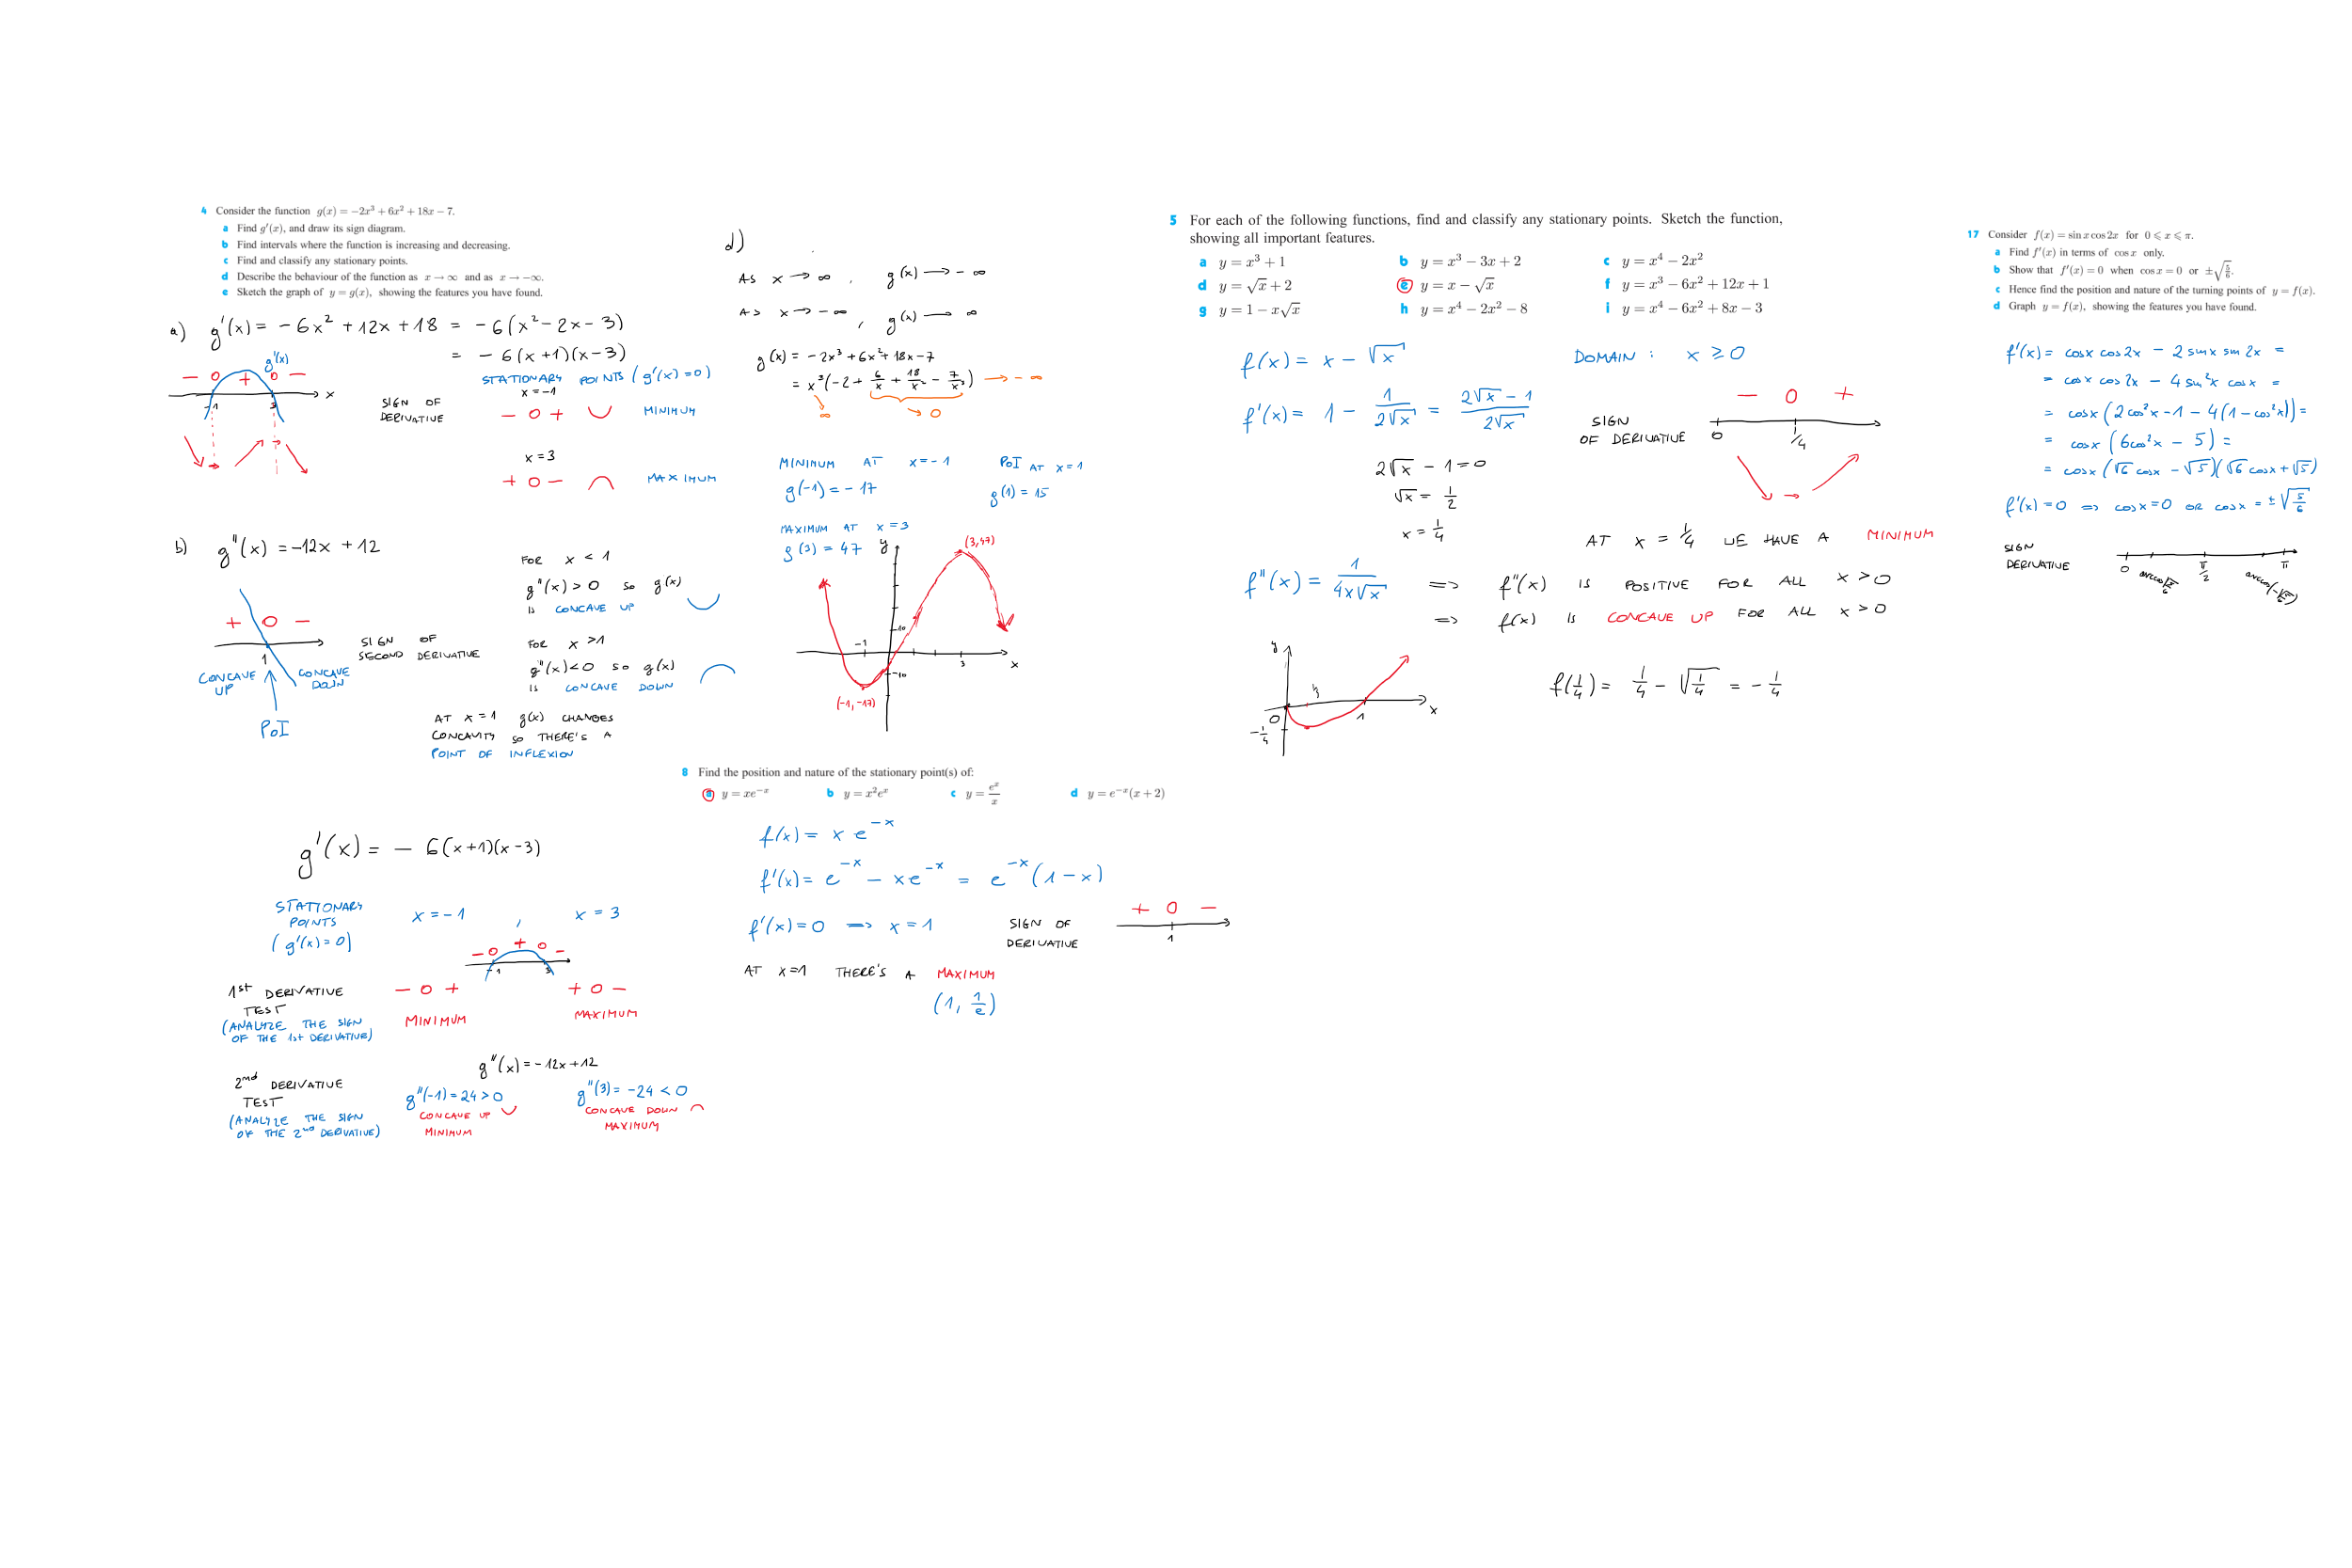 4 Consider the function g(x) = −2x³ + 6x² + 18x − 7.
a Find g′(x), and draw its sign diagram.
b Find intervals where the function is increasing and decreasing.
c Find and classify any stationary points.
d Describe the behaviour of the function as x → ∞ and as x → −∞.
e Sketch the graph of y = g(x), showing the features you have found.
a) g'(x) = − 6x² + 12x + 18 = − 6(x² − 2x − 3)
= − 6(x+1)(x−3)
g'(x)
− 0 + 0 −
-1 3 x
SIGN OF
DERIVATIVE
STATIONARY POINTS (g'(x)=0)
x = −1
− 0 + MINIMUM
x = 3
+ 0 − MAXIMUM
b) g''(x) = −12x + 12
+ 0 −
1
SIGN OF
SECOND DERIVATIVE
CONCAVE
UP
CONCAVE
DOWN
PoI
FOR x < 1
g''(x) > 0 so g(x)
IS CONCAVE UP
FOR x > 1
g''(x) < 0 so g(x)
IS CONCAVE DOWN
AT x = 1 g(x) CHANGES
CONCAVITY SO THERE'S A
POINT OF INFLEXION
d)
AS x → ∞ , g(x) → − ∞
AS x → − ∞ , g(x) → ∞
g(x) = − 2x³ + 6x² + 18x − 7
= x³(−2 + 6/x + 18/x² − 7/x³) → − ∞
∞ → 0
MINIMUM AT x = − 1
g(−1) = − 17
PoI AT x = 1
g(1) = 15
MAXIMUM AT x = 3
g(3) = 47
y
(3,47)
10
-1 3 x
-10
(−1, −17)
g'(x) = − 6(x+1)(x−3)
STATIONARY
POINTS
(g'(x) = 0)
x = − 1 , x = 3
− 0 + 0 −
-1 3
1st DERIVATIVE
TEST
(ANALYZE THE SIGN
OF THE 1st DERIVATIVE)
− 0 +
MINIMUM
+ 0 −
MAXIMUM
g''(x) = − 12x + 12
2nd DERIVATIVE
TEST
(ANALYZE THE SIGN
OF THE 2nd DERIVATIVE)
g''(−1) = 24 > 0
CONCAVE UP
MINIMUM
g''(3) = −24 < 0
CONCAVE DOWN
MAXIMUM
8 Find the position and nature of the stationary point(s) of:
a y = xe⁻ˣ b y = x²eˣ c y = eˣ/x d y = e⁻ˣ(x + 2)
f(x) = x e⁻ˣ
f'(x) = e⁻ˣ − xe⁻ˣ = e⁻ˣ(1 − x)
f'(x) = 0 ⇒ x = 1
SIGN OF
DERIVATIVE
+ 0 −
1
AT x=1 THERE'S A MAXIMUM
(1, 1/e)
5 For each of the following functions, find and classify any stationary points. Sketch the function,
showing all important features.
a y = x³ + 1 b y = x³ − 3x + 2 c y = x⁴ − 2x²
d y = √x + 2 e y = x − √x f y = x³ − 6x² + 12x + 1
g y = 1 − x√x h y = x⁴ − 2x² − 8 i y = x⁴ − 6x² + 8x − 3
f(x) = x − √x DOMAIN : x ≥ 0
f'(x) = 1 − 1/(2√x) = (2√x − 1)/(2√x)
SIGN
OF DERIVATIVE
− 0 +
0 1/4
2√x − 1 = 0
√x = 1/2
x = 1/4
AT x = 1/4 WE HAVE A MINIMUM
f''(x) = 1/(4x√x) ⇒ f''(x) IS POSITIVE FOR ALL x > 0
⇒ f(x) IS CONCAVE UP FOR ALL x > 0
y
0 1 x
−1/4
f(1/4) = 1/4 − √(1/4) = − 1/4
17 Consider f(x) = sin x cos 2x for 0 ⩽ x ⩽ π.
a Find f′(x) in terms of cos x only.
b Show that f′(x) = 0 when cos x = 0 or ±√(5/6).
c Hence find the position and nature of the turning points of y = f(x).
d Graph y = f(x), showing the features you have found.
f'(x) = cosx cos2x − 2 sinx sin2x =
= cosx cos2x − 4 sin²x cosx =
= cosx (2cos²x − 1 − 4(1 − cos²x)) =
= cosx (6cos²x − 5) =
= cosx (√6 cosx − √5)(√6 cosx + √5)
f'(x) = 0 ⇒ cosx = 0 OR cosx = ±√(5/6)
SIGN
DERIVATIVE
0 arccos√(5/6) π/2 arccos(−√(5/6)) π